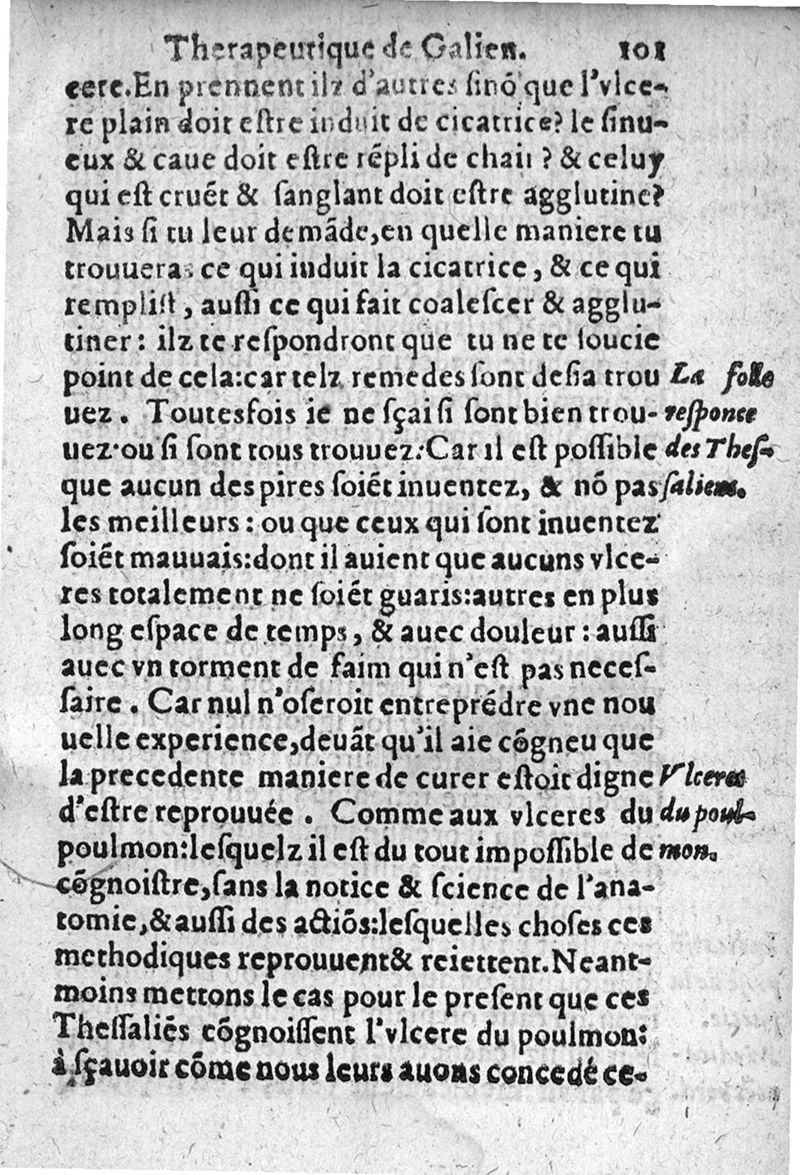 Therapeutique de Galien. 101
cere.En prennent ilz d'autres sinō que l'vlce-
re plain doit estre induit de cicatrice? le sinu-
eux & caue doit estre rēpli de chair ? & celuy
qui est cruēt & sanglant doit estre agglutine?
Mais si tu leur demāde,en quelle maniere tu
trouueras ce qui induit la cicatrice, & ce qui
remplist, aussi ce qui fait coalescer & agglu-
tiner: ilz te respondront que tu ne te soucie
point de cela:car telz remedes sont desia trou
uez. Toutesfois ie ne sçai si sont bien trou-
uez·ou si sont tous trouuez:Car il est possible
que aucun des pires soiēt inuentez, & nō pas
les meilleurs: ou que ceux qui sont inuentez
soiēt mauuais:dont il auient que aucuns vlce-
res totalement ne soiēt guaris:autres en plus
long espace de temps, & auec douleur: aussi
auec vn torment de faim qui n'est pas neces-
saire. Car nul n'oseroit entreprēdre vne nou
uelle experience,deuāt qu'il aie cōgneu que
la precedente maniere de curer estoit digne
d'estre reprouuée. Comme aux vlceres du
poulmon:lesquelz il est du tout impossible de
cōgnoistre,sans la notice & science de l'ana-
tomie,& aussi des actiōs:lesquelles choses ces
methodiques reprouuent& reiettent.Neant-
moins mettons le cas pour le present que ces
Thessaliēs cōgnoissent l'vlcere du poulmon:
à sçauoir cōme nous leurs auons concedé ce-
La folle
responce
des Thes-
saliens.
Vlceres
du poul-
mon.